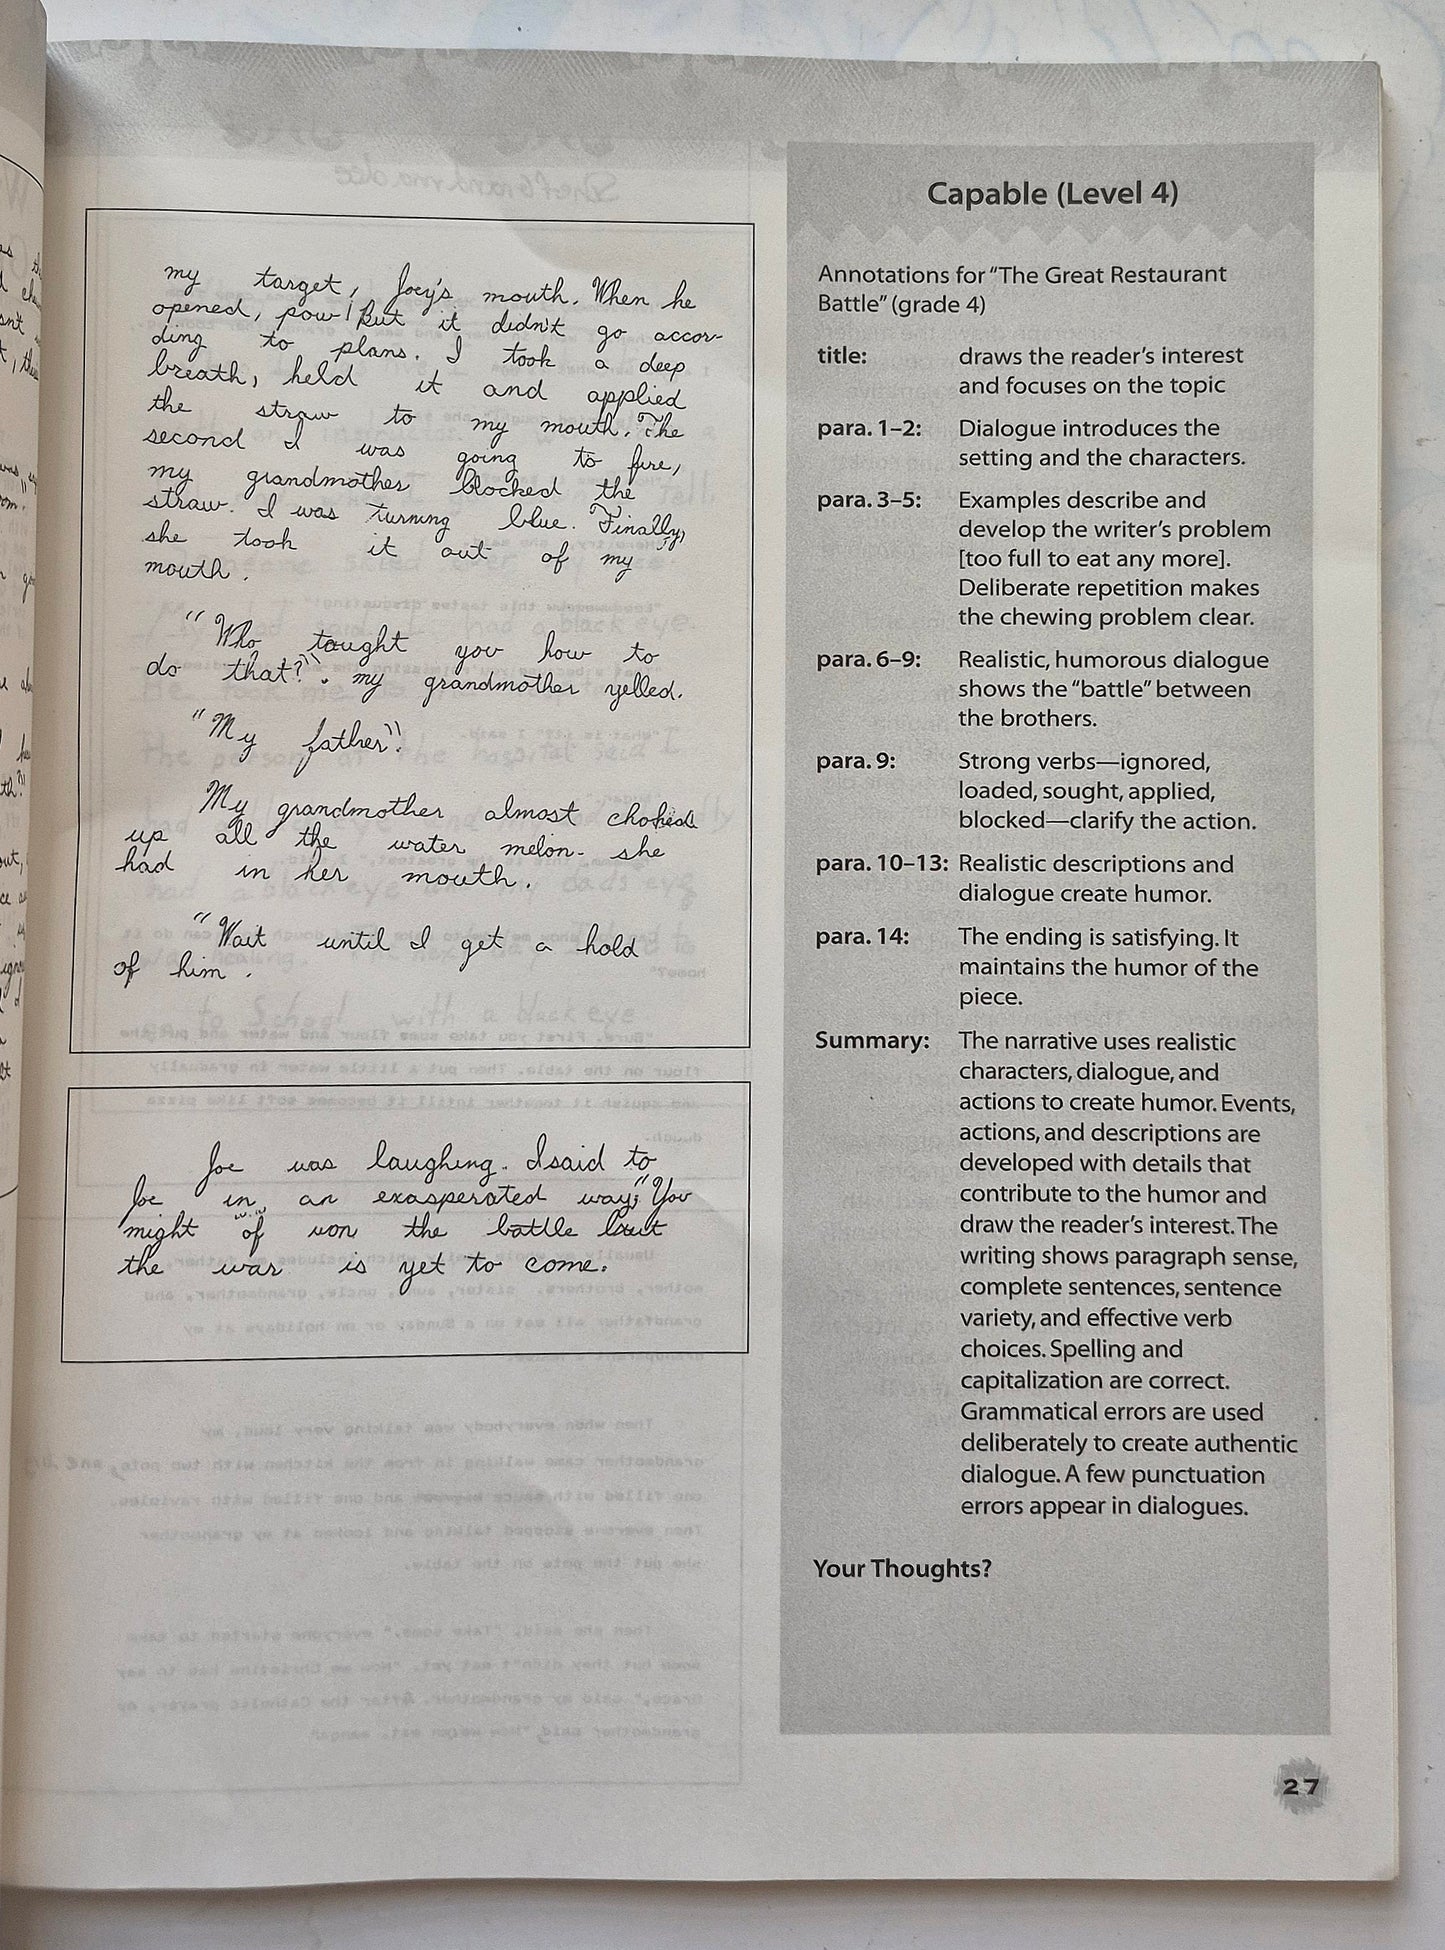 my target, Joey's mouth. When he
opened, pow! But it didn't go accor-
ding to plans. I took a deep
breath, held it and applied
the straw to my mouth. The
second I was going to fire,
my grandmother blocked the
straw. I was turning blue. Finally,
she took it out of my
mouth.
"Who taught you how to
do that?". my grandmother yelled.
"My father".
My grandmother almost choked
up all the water melon she
had in her mouth.
"Wait until I get a hold
of him.
Joe was laughing. I said to
Joe in an exasperated way, "You
might of won the battle but
the war is yet to come.
Capable (Level 4)
Annotations for "The Great Restaurant
Battle" (grade 4)
title: draws the reader's interest
and focuses on the topic
para. 1–2: Dialogue introduces the
setting and the characters.
para. 3–5: Examples describe and
develop the writer's problem
[too full to eat any more].
Deliberate repetition makes
the chewing problem clear.
para. 6–9: Realistic, humorous dialogue
shows the "battle" between
the brothers.
para. 9: Strong verbs—ignored,
loaded, sought, applied,
blocked—clarify the action.
para. 10–13: Realistic descriptions and
dialogue create humor.
para. 14: The ending is satisfying. It
maintains the humor of the
piece.
Summary: The narrative uses realistic
characters, dialogue, and
actions to create humor. Events,
actions, and descriptions are
developed with details that
contribute to the humor and
draw the reader's interest. The
writing shows paragraph sense,
complete sentences, sentence
variety, and effective verb
choices. Spelling and
capitalization are correct.
Grammatical errors are used
deliberately to create authentic
dialogue. A few punctuation
errors appear in dialogues.
Your Thoughts?
27